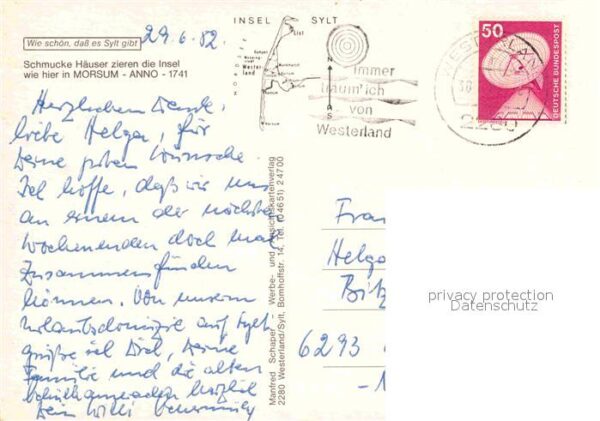 29.6.82
Wie schön, daß es Sylt gibt
Schmucke Häuser zieren die Insel
wie hier in MORSUM - ANNO - 1741
INSEL SYLT
List
Kampen
Westerland
Immer
träum' ich
von
Westerland
50
DEUTSCHE BUNDESPOST
2280
Herzlichen Dank,
liebe Helga, für
Deine guten Wünsche.
Ich hoffe, daß wir uns
an einem der nächsten
Wochenenden doch mal
zusammenfinden
können. Von unserem
Urlaubsdomizil auf Sylt
grüße ich Dich, Deine
Familie und die alten
herzlich
Dein Willi
Manfred Schaper - Werbe- und Ansichtskartenverlag
2280 Westerland/Sylt, Bomhoffstr. 14, Tel. (04651) 2 47 00
Frau
Helga
Bitz
6293
privacy protection
Datenschutz